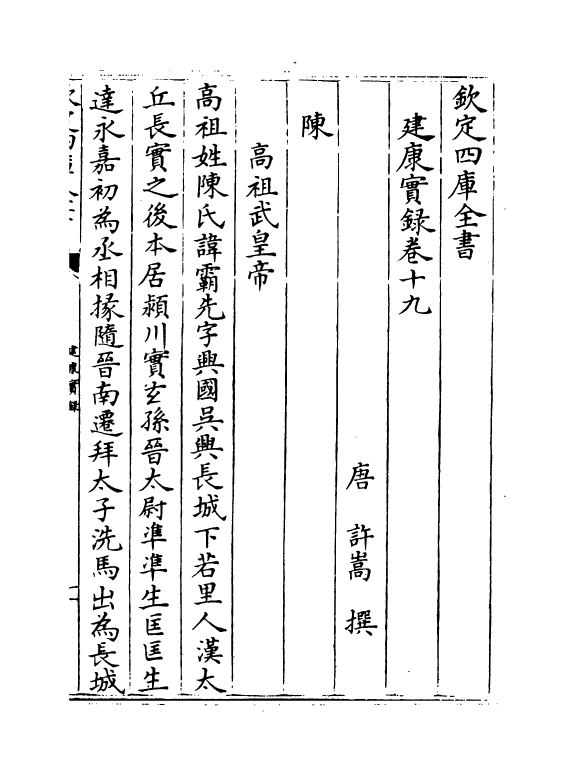 欽定四庫全書
建康實録卷十九
唐 許嵩 撰
陳
高祖武皇帝
高祖姓陳氏諱霸先字興國吳興長城下若里人漢太
丘長實之後本居潁川實玄孫晉太尉準準生匡匡生
達永嘉初為丞相掾隨晉南遷拜太子洗馬出為長城
建康實録
一